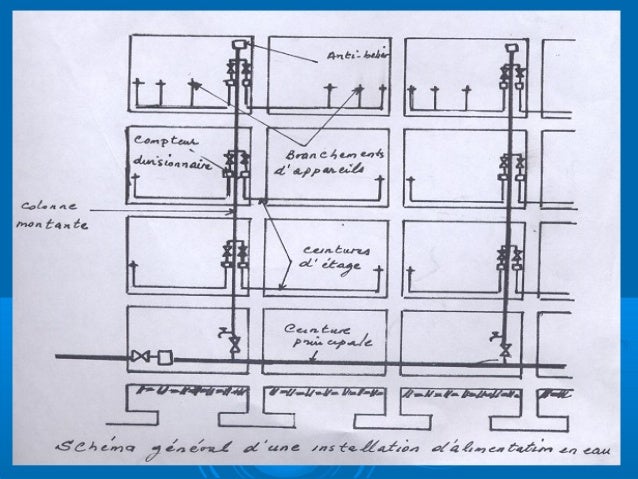 Anti-belier
Compteur
divisionnaire
Branchements
d'appareils
Colonne
montante
Ceintures
d'étage
Ceinture
principale
Schéma général d'une installation d'alimentation en eau